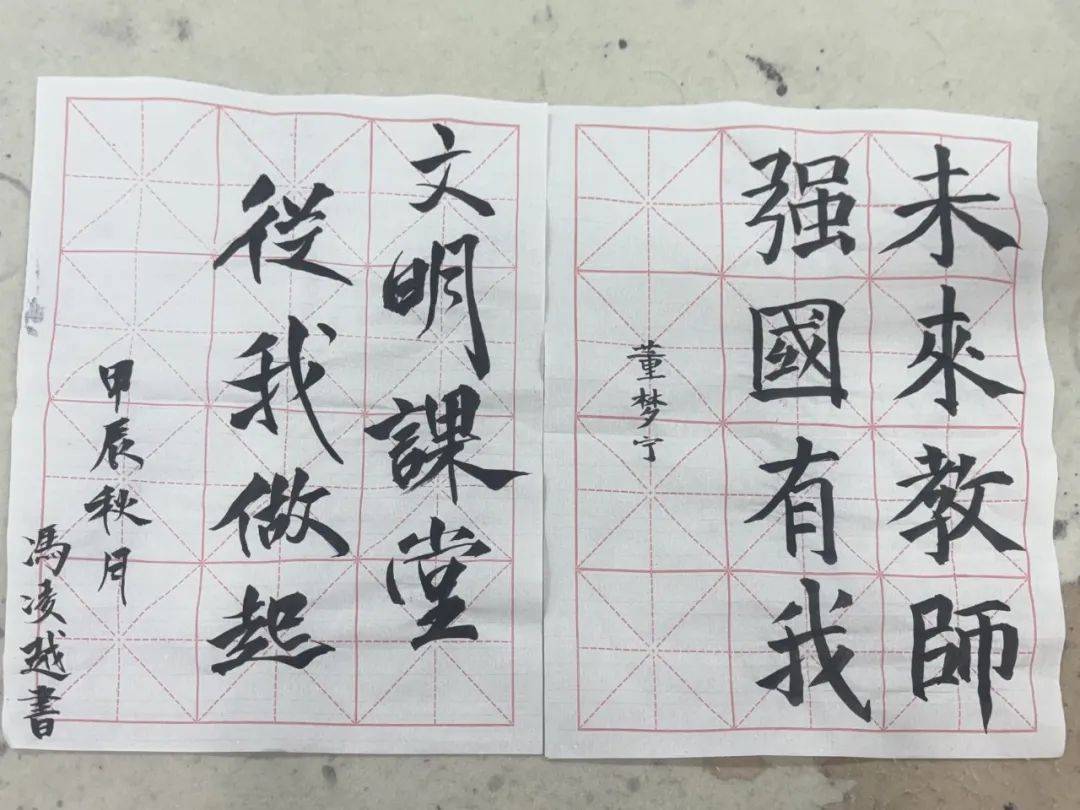 未來教師
强國有我
董梦宁
文明課堂
從我做起
甲辰秋月
馮凌越書